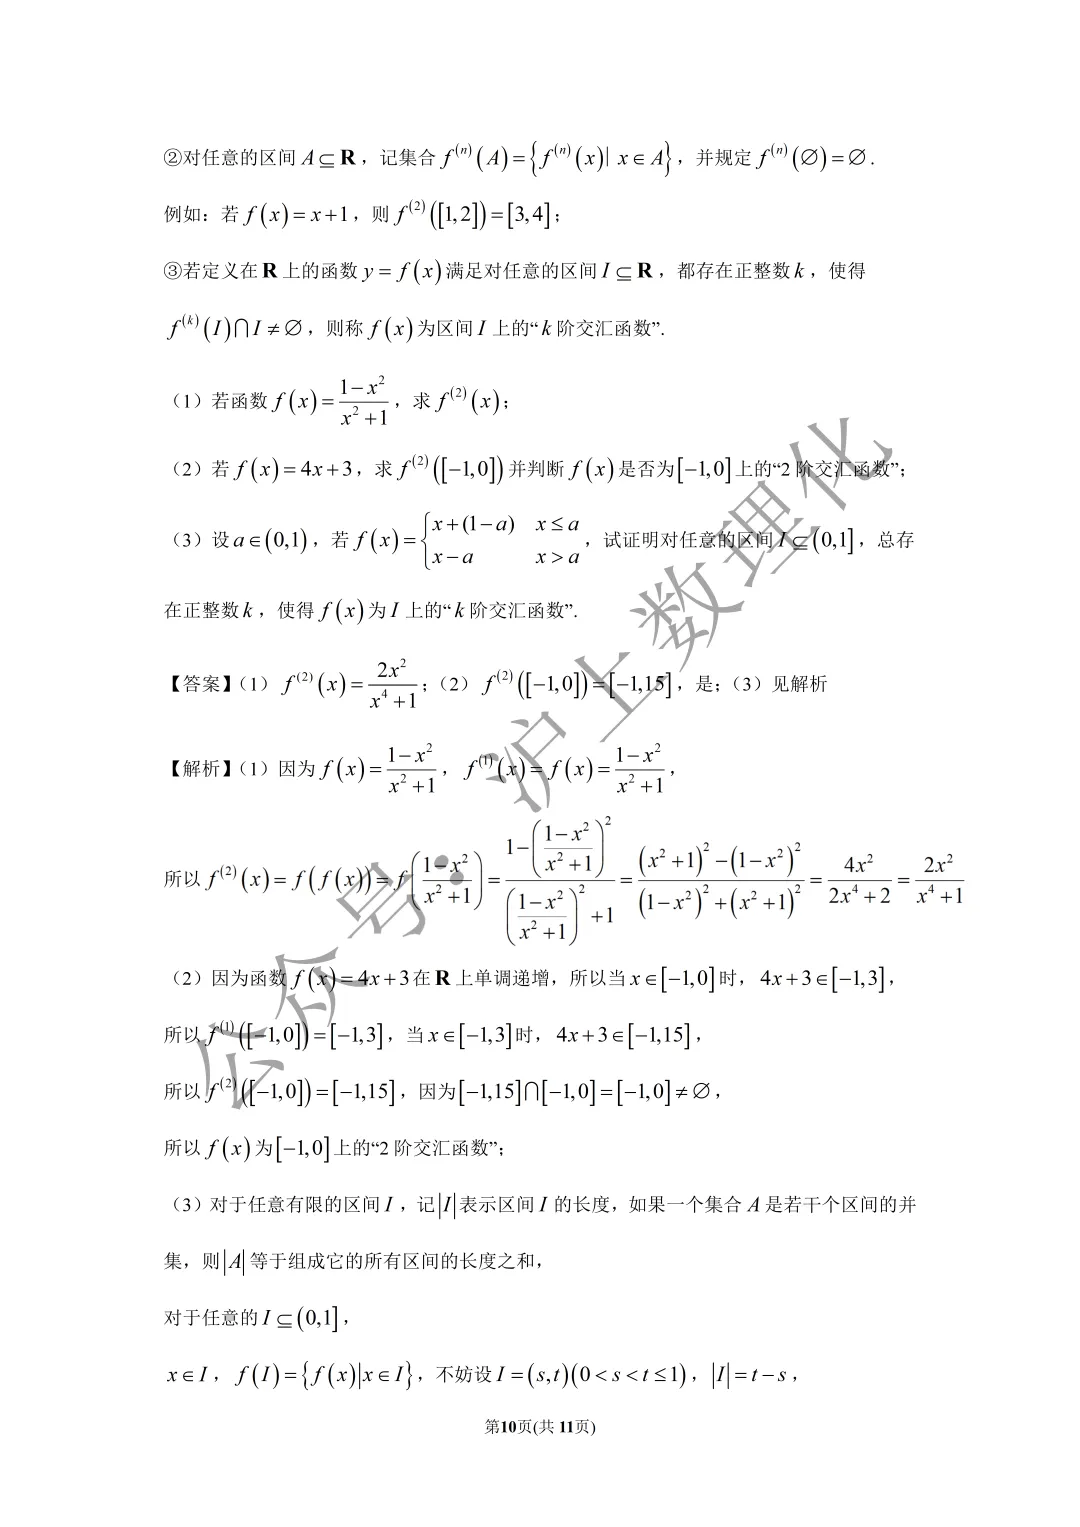 ②对任意的区间 A ⊆ R ，记集合 f^(n)(A) = {f^(n)(x) | x ∈ A}，并规定 f^(n)(∅) = ∅ .
例如：若 f(x) = x+1，则 f^(2)([1,2]) = [3,4]；
③若定义在 R 上的函数 y = f(x) 满足对任意的区间 I ⊆ R ，都存在正整数 k ，使得
f^(k)(I) ∩ I ≠ ∅ ，则称 f(x) 为区间 I 上的“ k 阶交汇函数”.
（1）若函数 f(x) = (1−x²)/(x²+1) ，求 f^(2)(x)；
（2）若 f(x) = 4x+3，求 f^(2)([−1,0]) 并判断 f(x) 是否为[−1,0]上的“2 阶交汇函数”；
（3）设 a ∈ (0,1) ，若 f(x) = { x+(1−a)  x ≤ a ; x−a  x > a ，试证明对任意的区间 I ⊆ (0,1] ，总存
在正整数 k ，使得 f(x) 为 I 上的“ k 阶交汇函数”.
【答案】（1） f^(2)(x) = 2x²/(x⁴+1) ；（2） f^(2)([−1,0]) = [−1,15] ，是；（3）见解析
【解析】（1）因为 f(x) = (1−x²)/(x²+1) ， f^(1)(x) = f(x) = (1−x²)/(x²+1) ，
所以 f^(2)(x) = f(f(x)) = f((1−x²)/(x²+1)) = (1−((1−x²)/(x²+1))²)/(((1−x²)/(x²+1))²+1) = ((x²+1)²−(1−x²)²)/((1−x²)²+(x²+1)²) = 4x²/(2x⁴+2) = 2x²/(x⁴+1)
（2）因为函数 f(x) = 4x+3 在 R 上单调递增，所以当 x ∈ [−1,0] 时， 4x+3 ∈ [−1,3] ，
所以 f^(1)([−1,0]) = [−1,3] ，当 x ∈ [−1,3] 时， 4x+3 ∈ [−1,15] ，
所以 f^(2)([−1,0]) = [−1,15] ，因为 [−1,15] ∩ [−1,0] = [−1,0] ≠ ∅ ，
所以 f(x) 为 [−1,0] 上的“2 阶交汇函数”；
（3）对于任意有限的区间 I ，记 |I| 表示区间 I 的长度，如果一个集合 A 是若干个区间的并
集，则 |A| 等于组成它的所有区间的长度之和，
对于任意的 I ⊆ (0,1] ，
x ∈ I ， f(I) = {f(x)|x ∈ I} ，不妨设 I = (s,t)(0 < s < t ≤ 1) ， |I| = t − s ，
第10页(共 11页)
公众号：沪上数理化